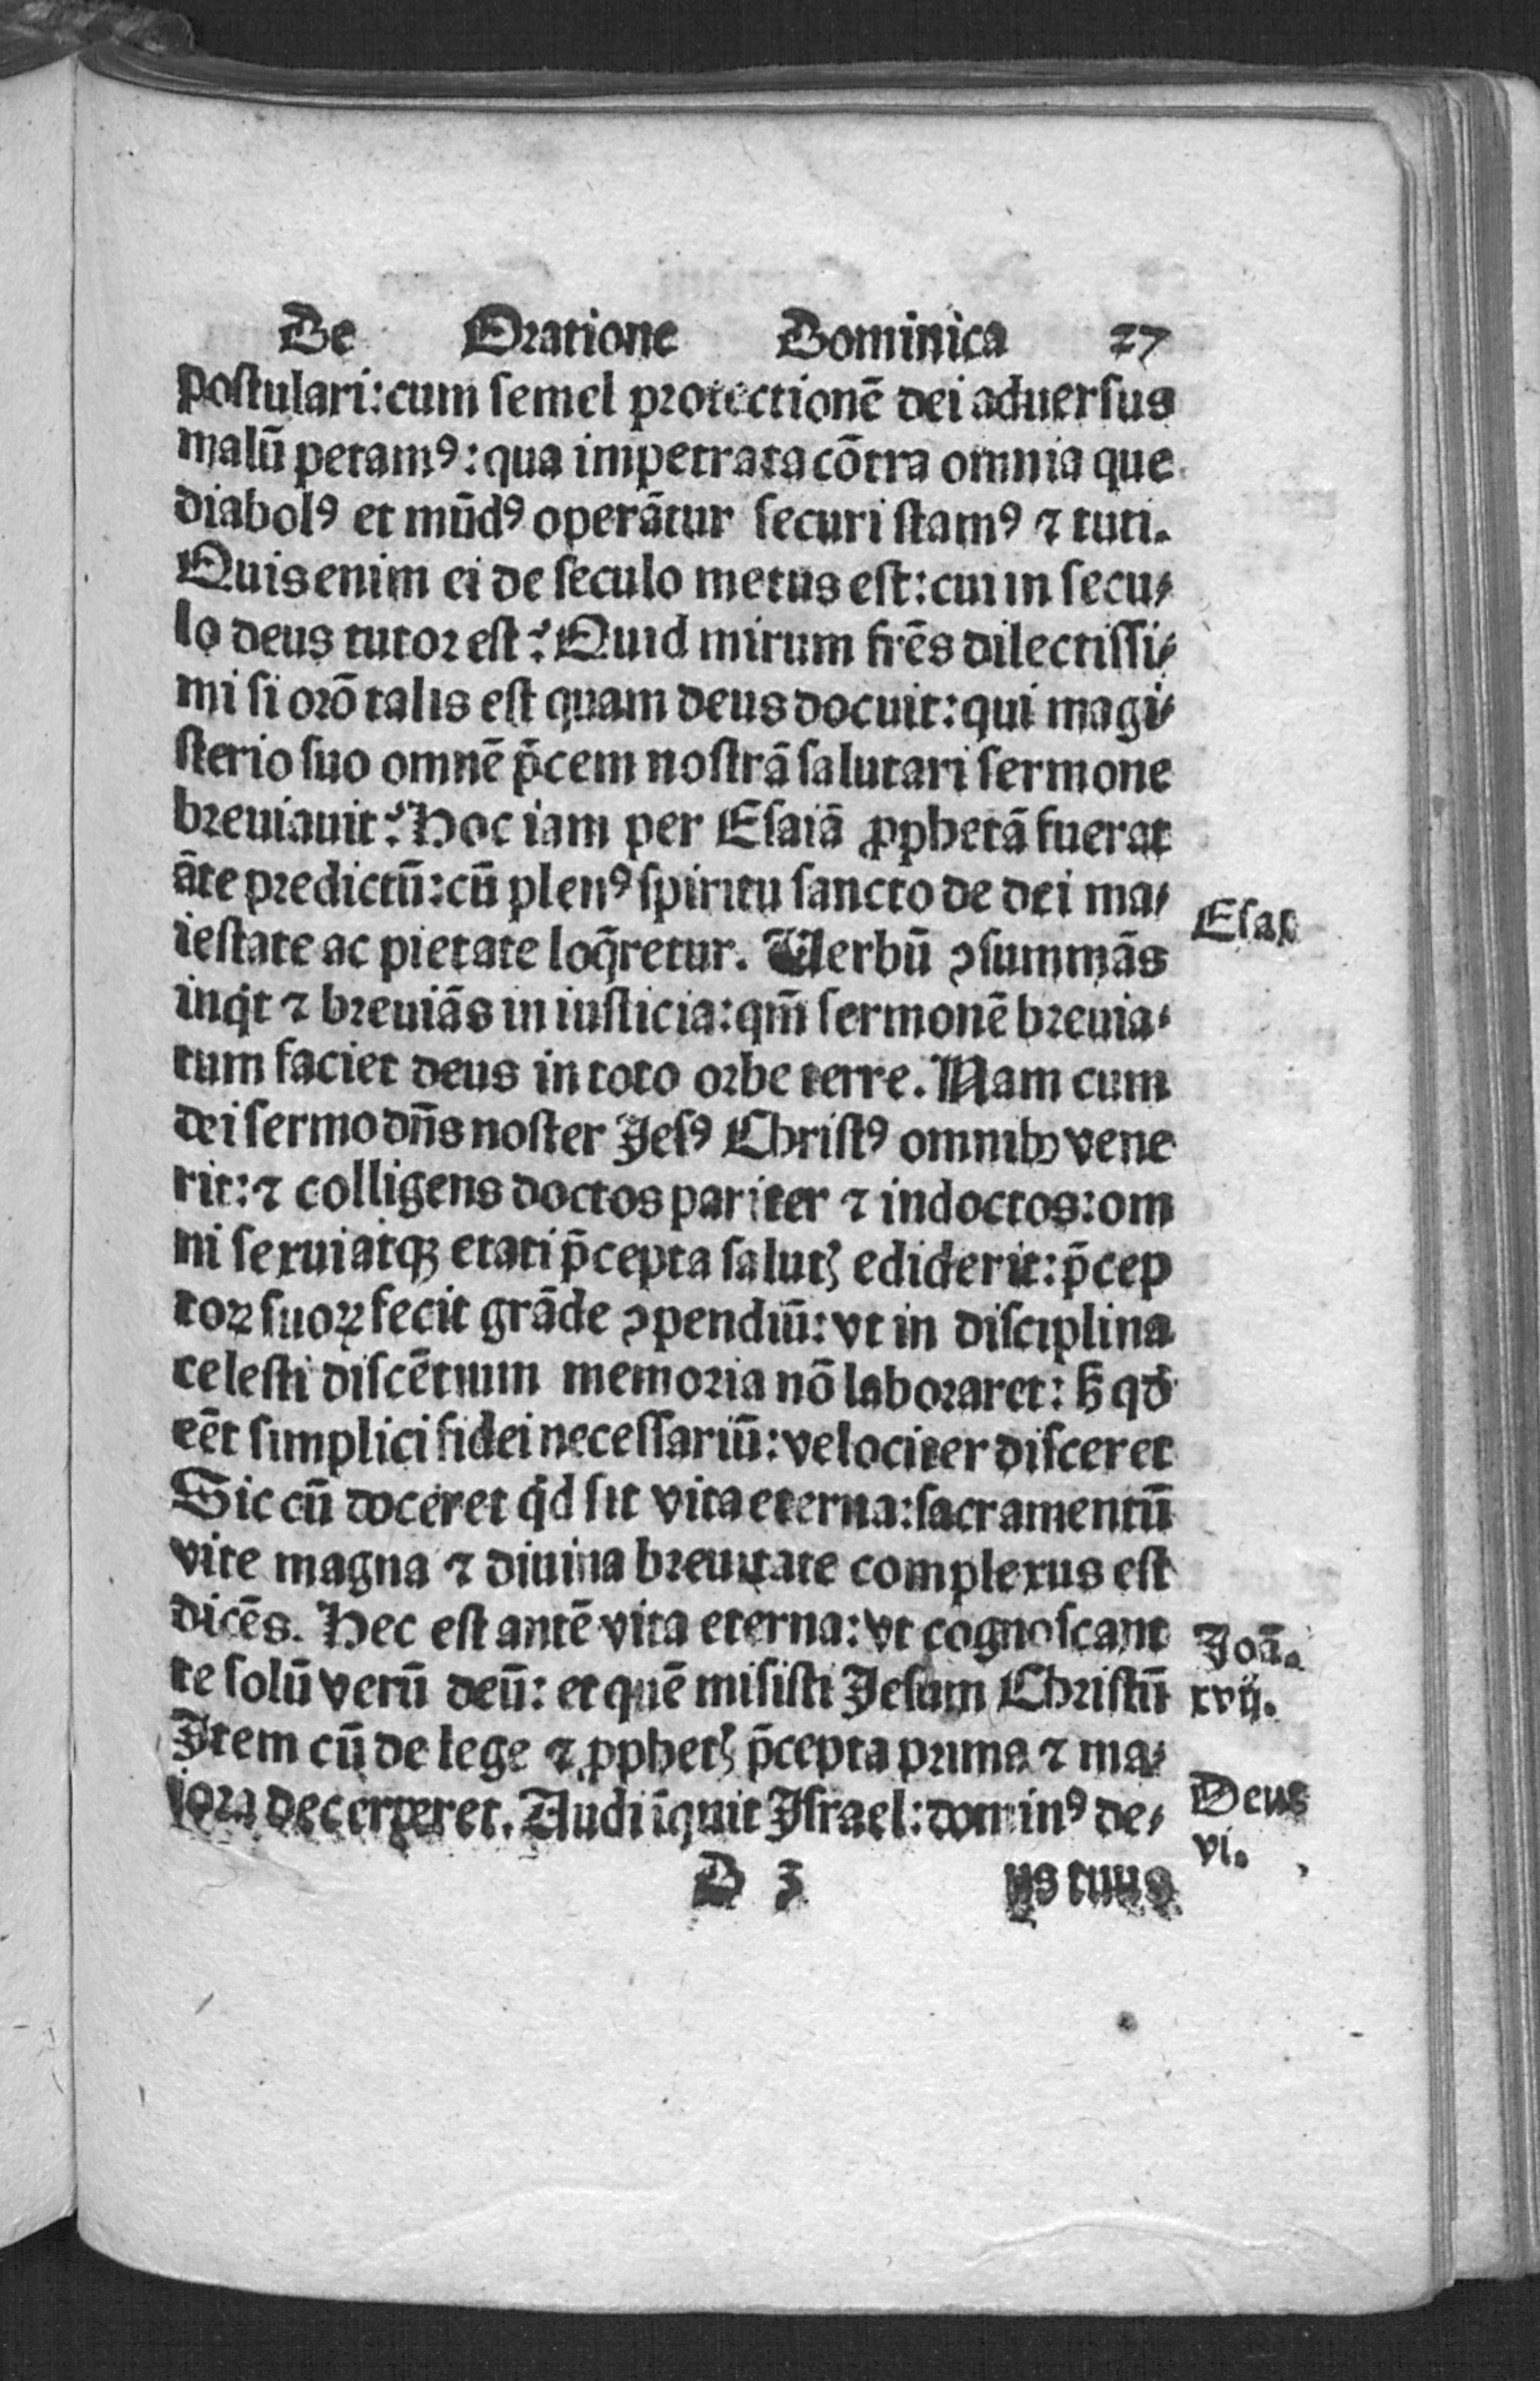 De Oratione Dominica 27
postulari: cum semel protectionē dei aduersus
malū petamꝰ: qua impetrata cōtra omnia que
diabolꝰ et mūdꝰ operātur securi stamꝰ ⁊ tuti.
Quis enim ei de seculo metus est: cui in secu⸗
lo deus tutor est? Quid mirum frēs dilectissi⸗
mi si orō talis est quam deus docuit: qui magi⸗
sterio suo omnē p̄cem nostrā salutari sermone
breuiauit? Hoc iam per Esaiā ꝓphetā fuerat
āte predictū: cū plenꝰ spiritu sancto de dei ma⸗
iestate ac pietate loq̄retur. Verbū ꝯsummās
inqͥt ⁊ breuiās in iusticia: qm̄ sermonē breuia⸗
tum faciet deus in toto orbe terre. Nam cum
dei sermo dn̄s noster Jesꝰ Christꝰ omnibꝰ vene
rit: ⁊ colligens doctos pariter ⁊ indoctos: om
ni sexui atqꝫ etati p̄cepta salutꝭ ediderit: p̄cep
toꝝ suoꝝ fecit grāde ꝯpendiū: vt in disciplina
celesti discētium memoria nō laboraret: sꝫ qđ
eēt simplici fidei necessariū: velociter disceret
Sic cū doceret qͥd sit vita eterna: sacramentū
vite magna ⁊ diuina breuitate complexus est
dicēs. Hec est autē vita eterna: vt cognoscant
te solū verū deū: et quē misisti Jesum Christū
Item cū de lege ⁊ ꝓphetꝭ p̄cepta prima ⁊ ma⸗
iora decerperet. Audi īquit Israel: dominꝰ de⸗
D 3 us tuus
Esai
Joā.
xvij.
Deut
vi.